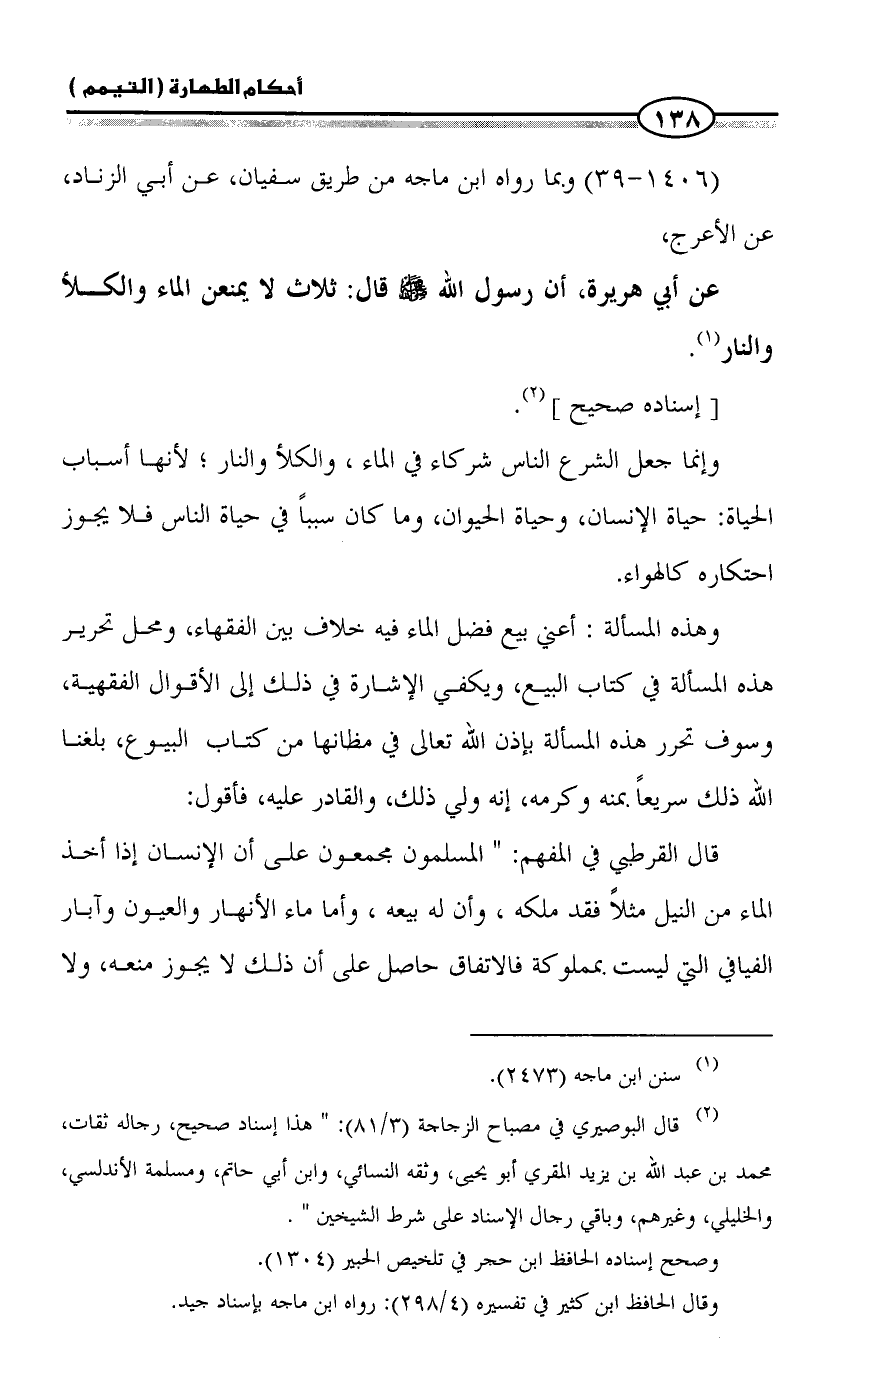 أحكام الطهارة (التيمم)
١٣٨
(١٤٠٦-٣٩) وبما رواه ابن ماجه من طريق سفيان، عن أبي الزناد،
عن الأعرج،
عن أبي هريرة، أن رسول الله ﷺ قال: ثلاث لا يمنعن الماء والكلأ
والنار(١).
[ إسناده صحيح ](٢).
وإنما جعل الشرع الناس شركاء في الماء ، والكلأ والنار ؛ لأنها أسباب
الحياة: حياة الإنسان، وحياة الحيوان، وما كان سبباً في حياة الناس فلا يجوز
احتكاره كالهواء.
وهذه المسألة : أعني بيع فضل الماء فيه خلاف بين الفقهاء، ومحل تحرير
هذه المسألة في كتاب البيع، ويكفي الإشارة في ذلك إلى الأقوال الفقهية،
وسوف تحرر هذه المسألة بإذن الله تعالى في مظانها من كتاب البيوع، بلغنا
الله ذلك سريعاً بمنه وكرمه، إنه ولي ذلك، والقادر عليه، فأقول:
قال القرطبي في المفهم: " المسلمون مجمعون على أن الإنسان إذا أخذ
الماء من النيل مثلاً فقد ملكه ، وأن له بيعه ، وأما ماء الأنهار والعيون وآبار
الفيافي التي ليست بمملوكة فالاتفاق حاصل على أن ذلك لا يجوز منعه، ولا
(١) سنن ابن ماجه (٢٤٧٣).
(٢) قال البوصيري في مصباح الزجاجة (٨١/٣): " هذا إسناد صحيح، رجاله ثقات،
محمد بن عبد الله بن يزيد المقري أبو يحيى، وثقه النسائي، وابن أبي حاتم، ومسلمة الأندلسي،
والخليلي، وغيرهم، وباقي رجال الإسناد على شرط الشيخين " .
وصحح إسناده الحافظ ابن حجر في تلخيص الحبير (١٣٠٤).
وقال الحافظ ابن كثير في تفسيره (٢٩٨/٤): رواه ابن ماجه بإسناد جيد.